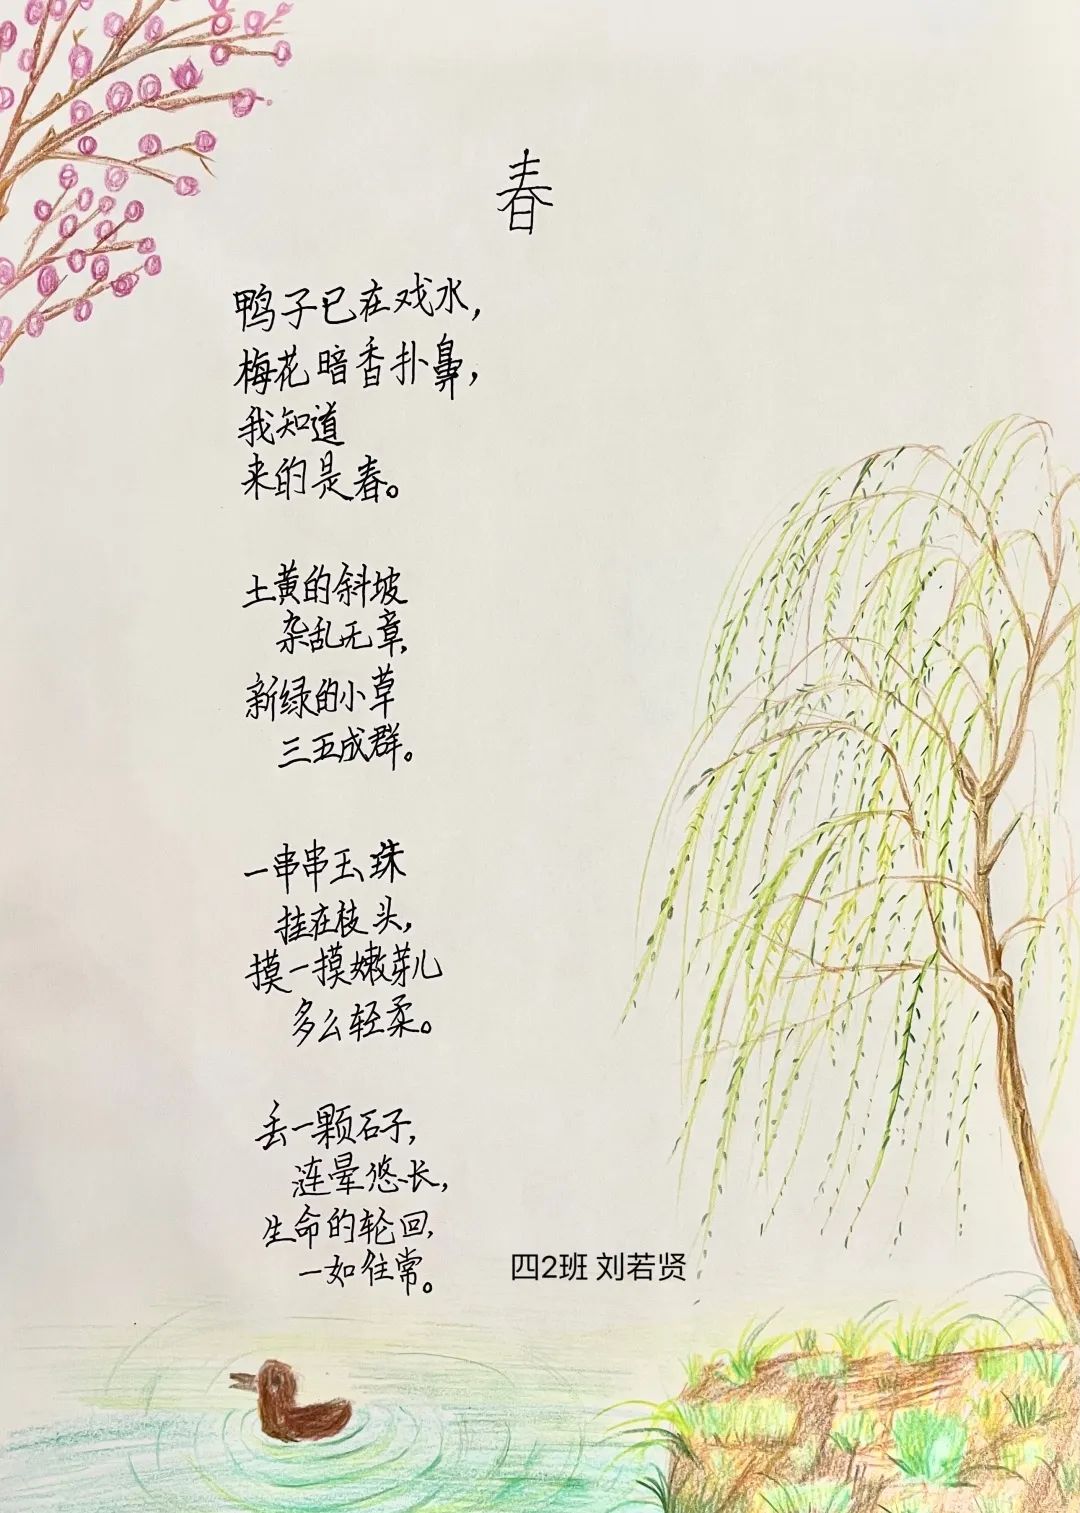 春
鸭子已在戏水，
梅花暗香扑鼻，
我知道
来的是春。
土黄的斜坡
杂乱无章，
新绿的小草
三五成群。
一串串玉珠
挂在枝头，
摸一摸嫩芽儿
多么轻柔。
丢一颗石子，
涟晕悠长，
生命的轮回，
一如往常。
四2班 刘若贤